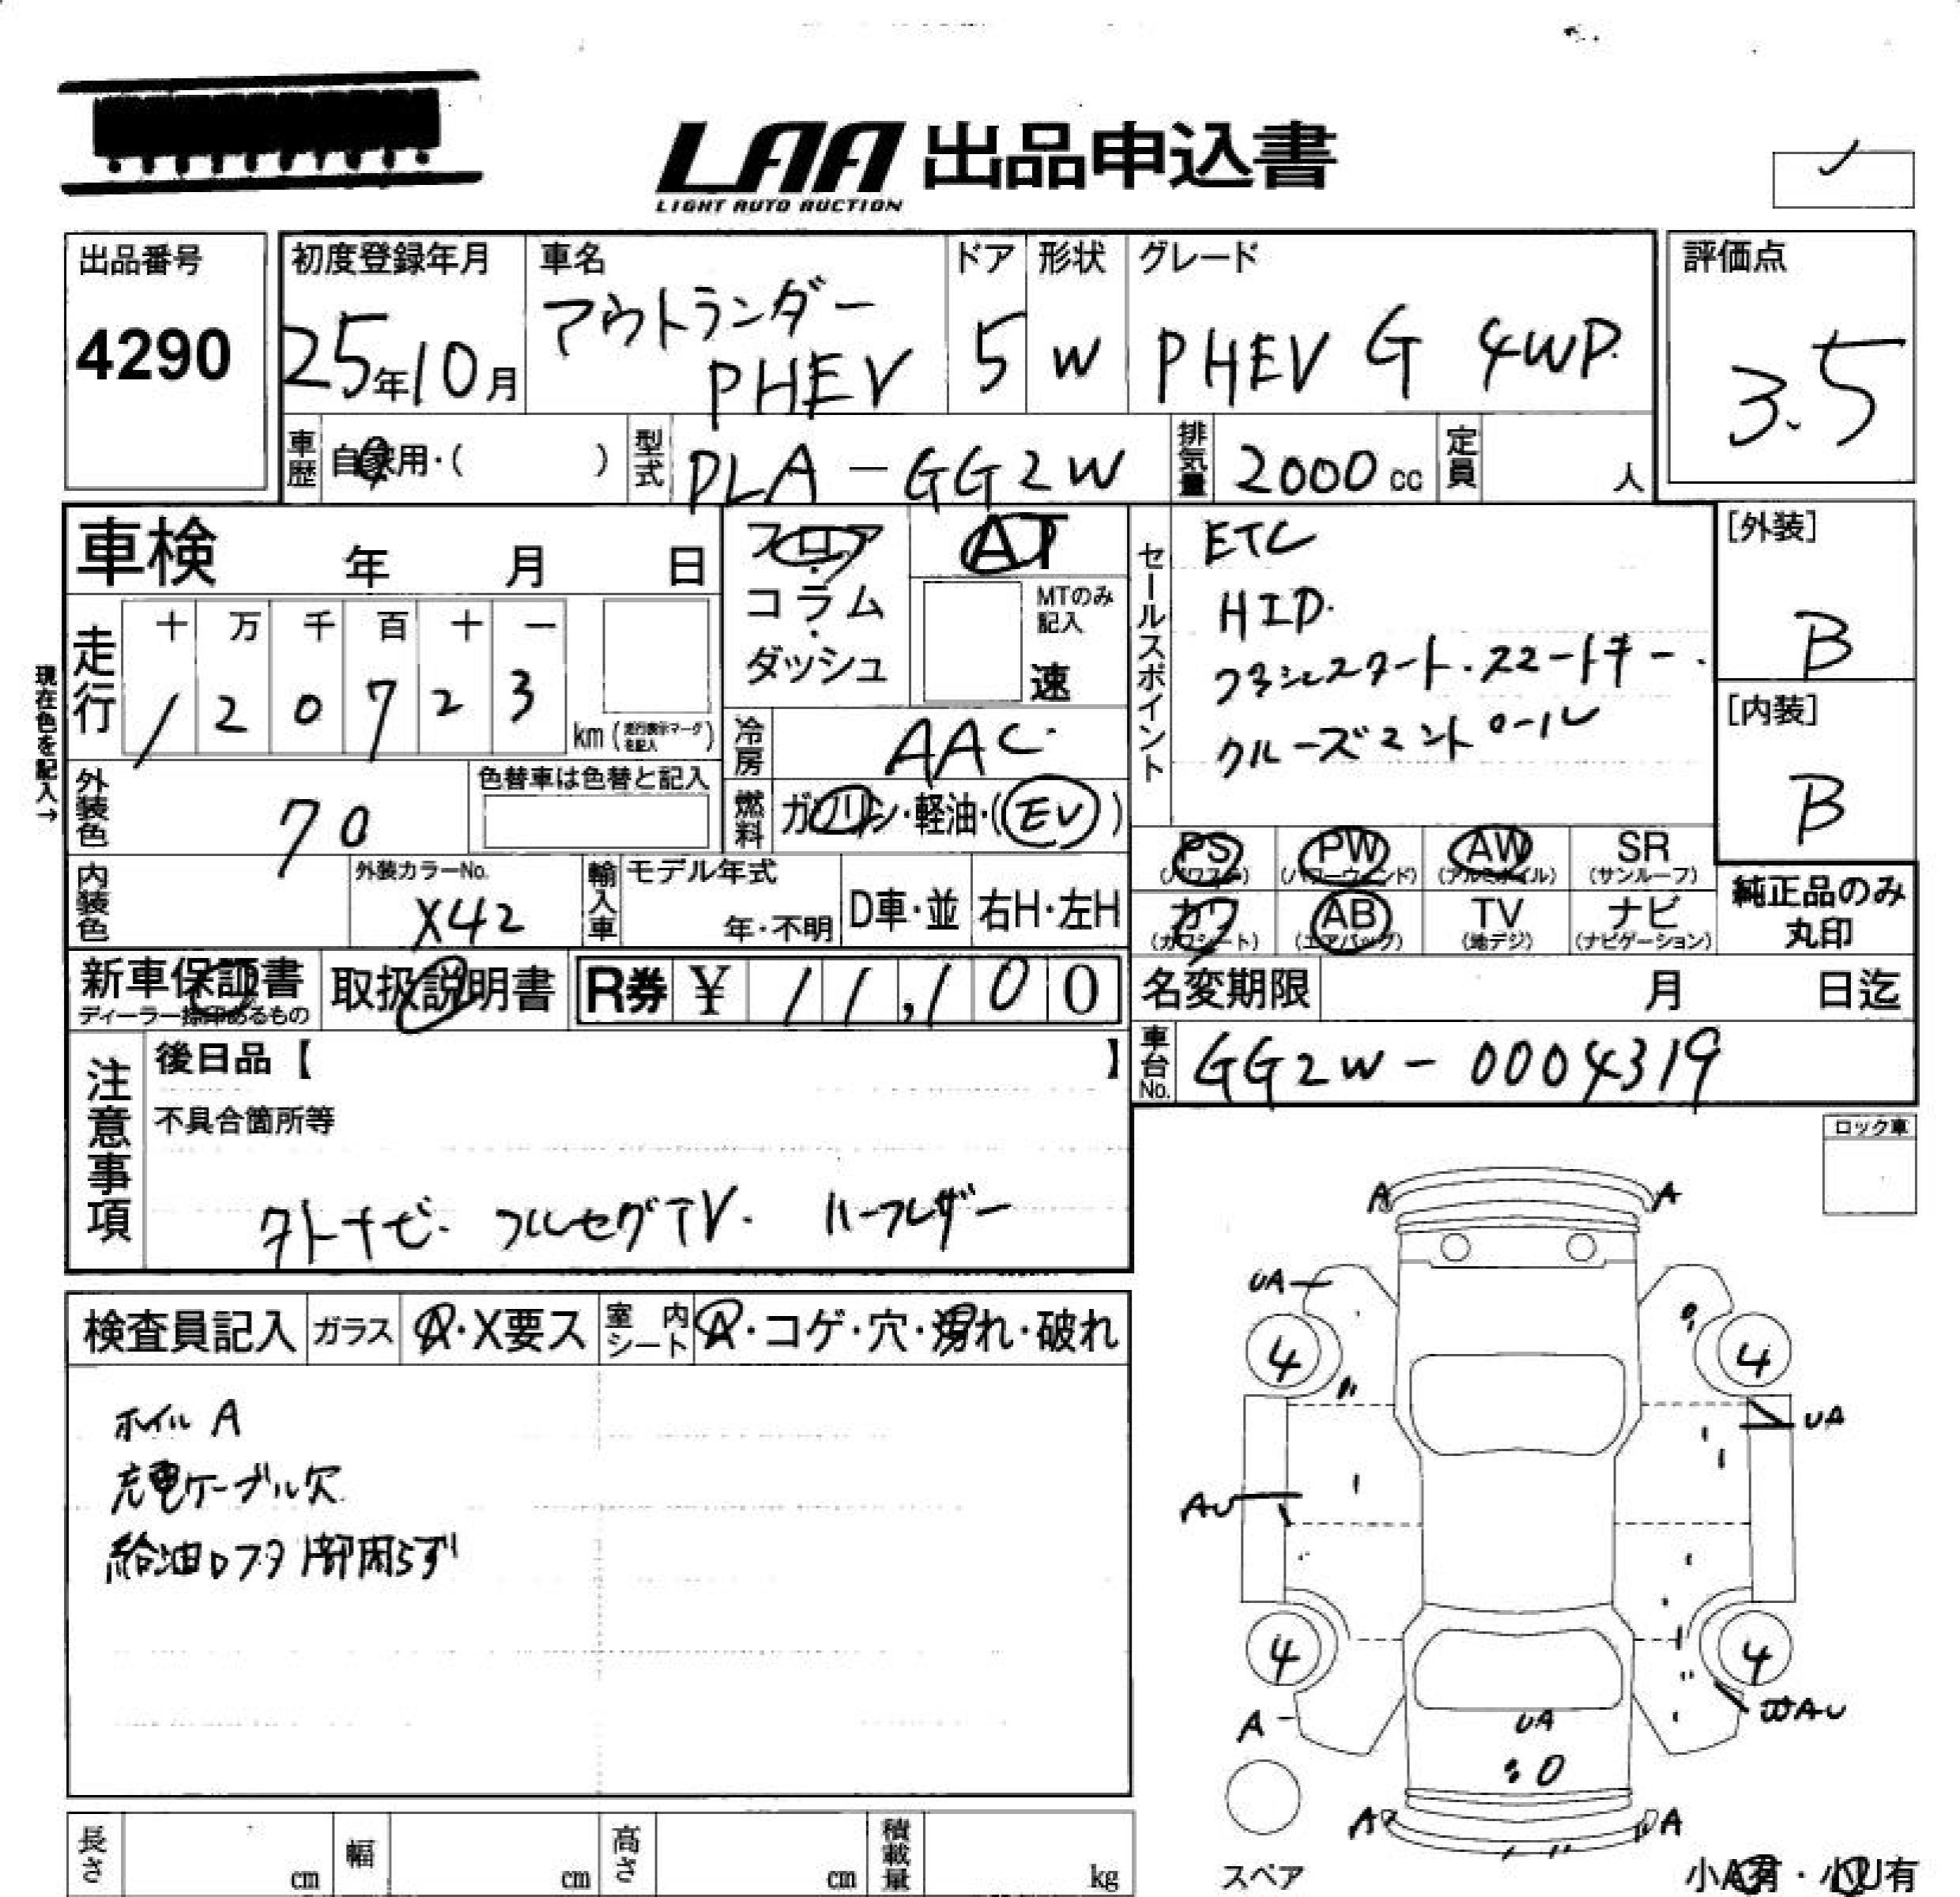 LAA 出品申込書
LIGHT AUTO AUCTION
出品番号
4290
初度登録年月
25年10月
車名
アウトランダー
PHEV
ドア
5
形状
W
グレード
PHEV G 4WD
評価点
3.5
車歴
自家用・( )
型式
DLA-GG2W
排気量
2000cc
定員
人
車検 年 月 日
フロア・コラム・ダッシュ
AT
MTのみ記入
速
セールスポイント
ETC
HID.
プッシュスタート.スマートキー.
クルーズコントロール
[外装]
B
[内装]
B
現在色を記入→
走行
十 万 千 百 十 一
1 2 0 7 2 3
km (走行表示マークを記入)
冷房
AAC.
外装色
70
色替車は色替と記入
燃料
ガソリン・軽油・(EV)
PS
(パワステ)
PW
(パワーウィンド)
AW
(アルミホイル)
SR
(サンルーフ)
カワ
(カワシート)
AB
(エアバッグ)
TV
(地デジ)
ナビ
(ナビゲーション)
純正品のみ
丸印
内装色
外装カラーNo.
X42
輸入車
モデル年式
年・不明
D車・並
右H・左H
新車保証書
ディーラー捺印あるもの
取扱説明書
R券 ¥ 11,100
名変期限 月 日迄
車台No.
GG2W-0004319
注意事項
後日品【 】
不具合箇所等
外ナビ. フルセグTV. ハーフレザー
ロック車
検査員記入
ガラス
A・X要ス
室内シート
A・コゲ・穴・汚れ・破れ
ホイルA
充電ケーブル欠
給油口フタ1部閉らず
A
A
UA
4
4
UA
AU
4
4
A
AU
UA
A
A
スペア
小A有・小U有
長さ
cm
幅
cm
高さ
cm
積載量
kg